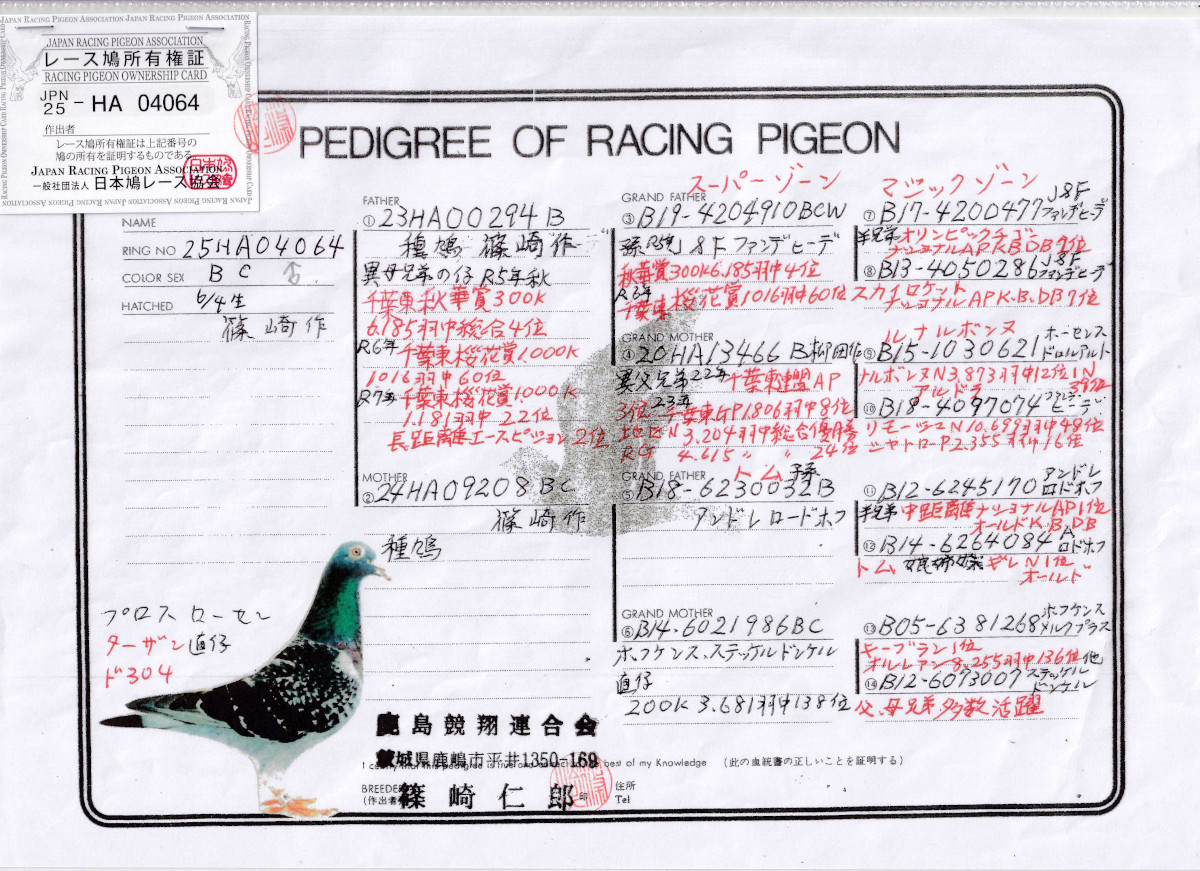 JAPAN RACING PIGEON ASSOCIATION JAPAN RACING PIGEON ASSOCIATION
JAPAN RACING PIGEON ASSOCIATION
レース鳩所有権証
RACING PIGEON OWNERSHIP CARD
JPN
25 - HA 04064
作出者
レース鳩所有権証は上記番号の
鳩の所有を証明するものである。
JAPAN RACING PIGEON ASSOCIATION
一般社団法人 日本鳩レース協会
PEDIGREE OF RACING PIGEON
NAME
RING NO 25HA04064
COLOR SEX B C ♂
HATCHED 6/4生
篠崎作
FATHER
① 23HA00294 B
種鳩 篠崎作
異母兄弟の仔 R5年秋
千葉東秋華賞300K
6.185羽中総合4位
R6年 千葉東桜花賞1.000K
1016羽中60位
R7年 千葉東桜花賞1000K
1.181羽中 22位
長距離エースピジョン2位
MOTHER
② 24HA09208 BC
篠崎作
種鳩
スーパーゾーン
GRAND FATHER
③ B19-4204910BCW
孫 R5秋 18F ファンデヒーデ
秋華賞300K6.185羽中4位
R6年
千葉東 桜花賞1016羽中60位
GRAND MOTHER
④ 20HA13466 B柳田作
異父兄弟22年千葉東連盟AP
3位 23年 千葉東GP1.806羽中8位
地区N 3.204羽中総合優勝
RG 4.615 〃 〃 24位
トム 孫
GRAND FATHER
⑤ B18-6230032B
アンドレ ロードホフ
GRAND MOTHER
⑥ B14-6021986BC
ホフケンス、ステッケルドンケル
直仔
200K 3.681羽中138位
マジックゾーン
⑦ B17-4200477 18F ファンデヒーデ
半兄弟オリンピックチゴ
ナショナルAPKBDB7位
⑧ B13-4050286 18F ファンデヒーデ
スカイロケット
ナショナルAPK.B.DB7位
ルナルボンヌ
⑨ B15-1030621 ホーセンス ドロルアルト
ナルボンヌN3.873羽中12位IN
アルドラ 39位
⑩ B18-4097074 ファンデヒーデ
リモージュN10.699羽中48位
シャトローP2.355羽中16位
⑪ B12-6245170 アンドレ ロドホフ
半兄弟 中距離ナショナルAP1位
オールドK.B.DB
⑫ B14-6264084 A ロドホフ
トム 娘姉妹 ギレN1位
オールド
⑬ B05-6381268 ホフケンス メルクプラス
キーブラン1位
オルレアン8.255羽中136位他
⑭ B12-6073007 ステッケル ドンケル
父、母兄弟多数活躍
プロス ローセン
ターザン直仔
ド304
鹿島競翔連合会
茨城県鹿嶋市平井1350-169
best of my Knowledge (此の血統書の正しいことを証明する)
BREEDER
(作出者) 篠崎仁郎 印
住所
Tel